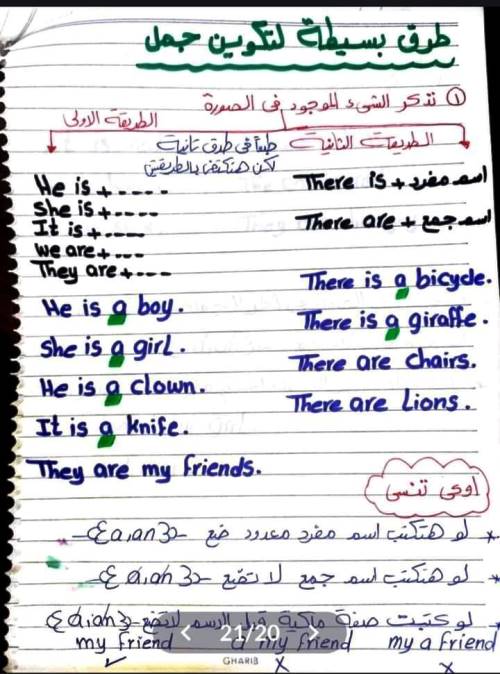 طرق بسيطة لتكوين جمل
① نذكر الشيء الموجود في الصورة
الطريقة الاولى
الطريقة الثانية
طبعا في طرق تانية
لكن هنكتفي بالطريقتين
He is + - - - -
She is + - - - -
It is + - - - -
we are + - - -
They are + - - -
There is + اسم مفرد
There are + اسم جمع
He is a boy.
She is a girl.
He is a clown.
It is a knife.
They are my friends.
There is a bicycle.
There is a giraffe.
There are chairs.
There are Lions.
اوعى تنسى
* لو هتكتب اسم مفرد معدود ضع {a, an}
* لو هتكتب اسم جمع لا تضع {a, an}
* لو كتبت صفة ملكية قبل الاسم لا تضع {a, an}
my friend a my friend my a friend
✓ X X
21/20
GHARIB